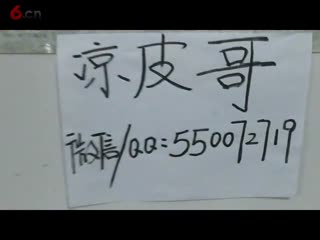 6.cn
凉皮哥
微信/QQ:550072719